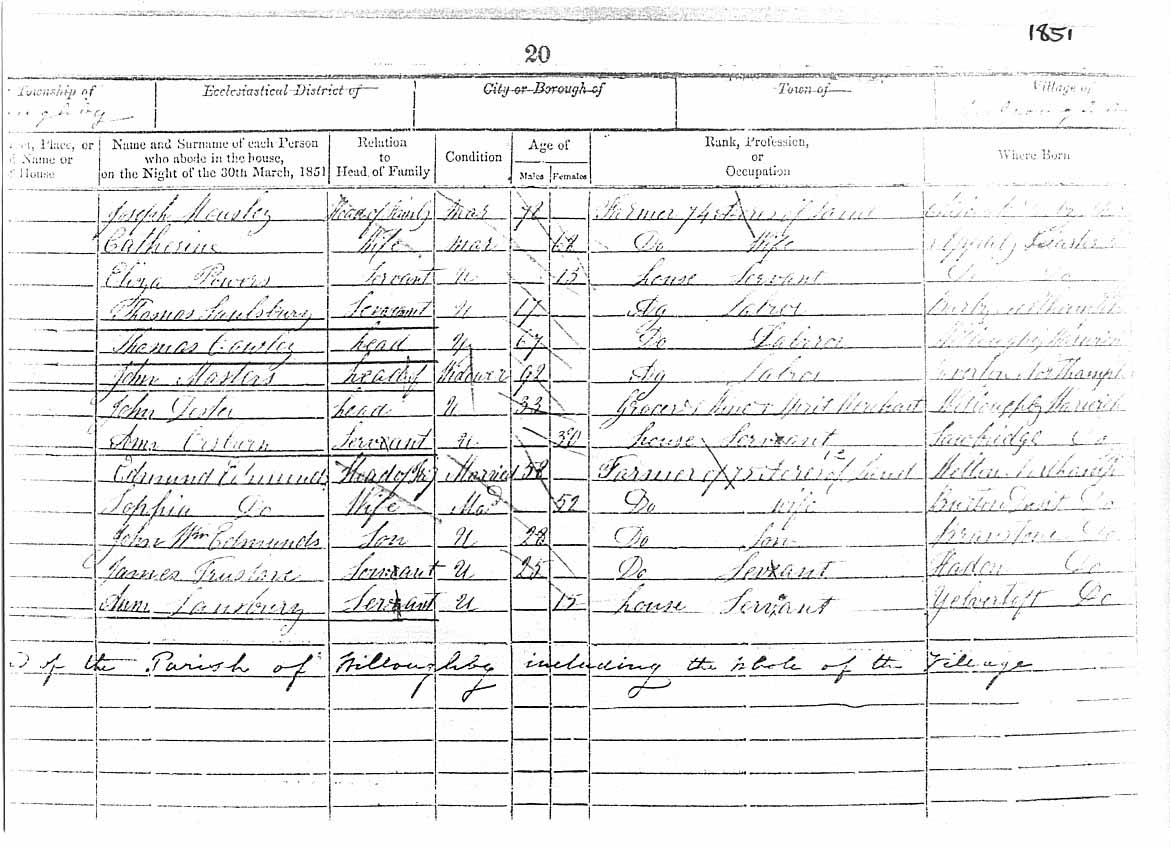 1851
20
Township of Ecclesiastical District of City or Borough of Town of Village of
Place, or Name or House
Name and Surname of each Person who abode in the house, on the Night of the 30th March, 1851
Relation to Head of Family
Condition
Age of Males Females
Rank, Profession, or Occupation
Where Born
Joseph Head of Family Mar Farmer 74 Acres of Land
Catherine Wife Mar 62 Do Wife
Eliza Powers Servant U 15 house Servant Do Do
Thomas Saulsbury Servant U 17 Ag Labror
Thomas Cowley head U 67 Do Laborer Willoughby Warwick
John Masters head of Widower 92 Ag Labror Northampt
John Dester head U 33 Grocer & Spirit Merchant Willoughby Warwick
Ann Servant U 30 house Servant Sawbridge Do
Edmund Edmunds Head of Married 58 Farmer of 75 Acres of Land
Sophia Do Wife Mard 52 Do Wife Do
John Wm Edmunds Son U 28 Do Son Braunstone Do
James Servant U 25 Do Servant Do
Ann Servant U 15 house Servant Yelvertoft Do
of the Parish of Willoughby including the whole of the Village